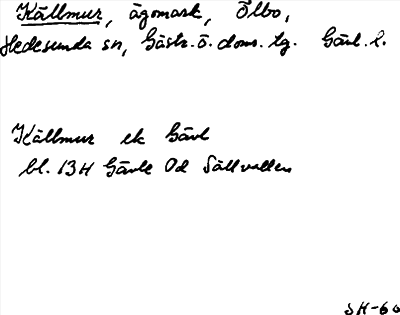 Källmur, ägomark, Ölbo,
Hedesunda sn, Gästr. ö. doms. tg. Gävl. l.
Källmur ek Gävl
bl. 13H Gävle 0d Sällvallen
SH-60